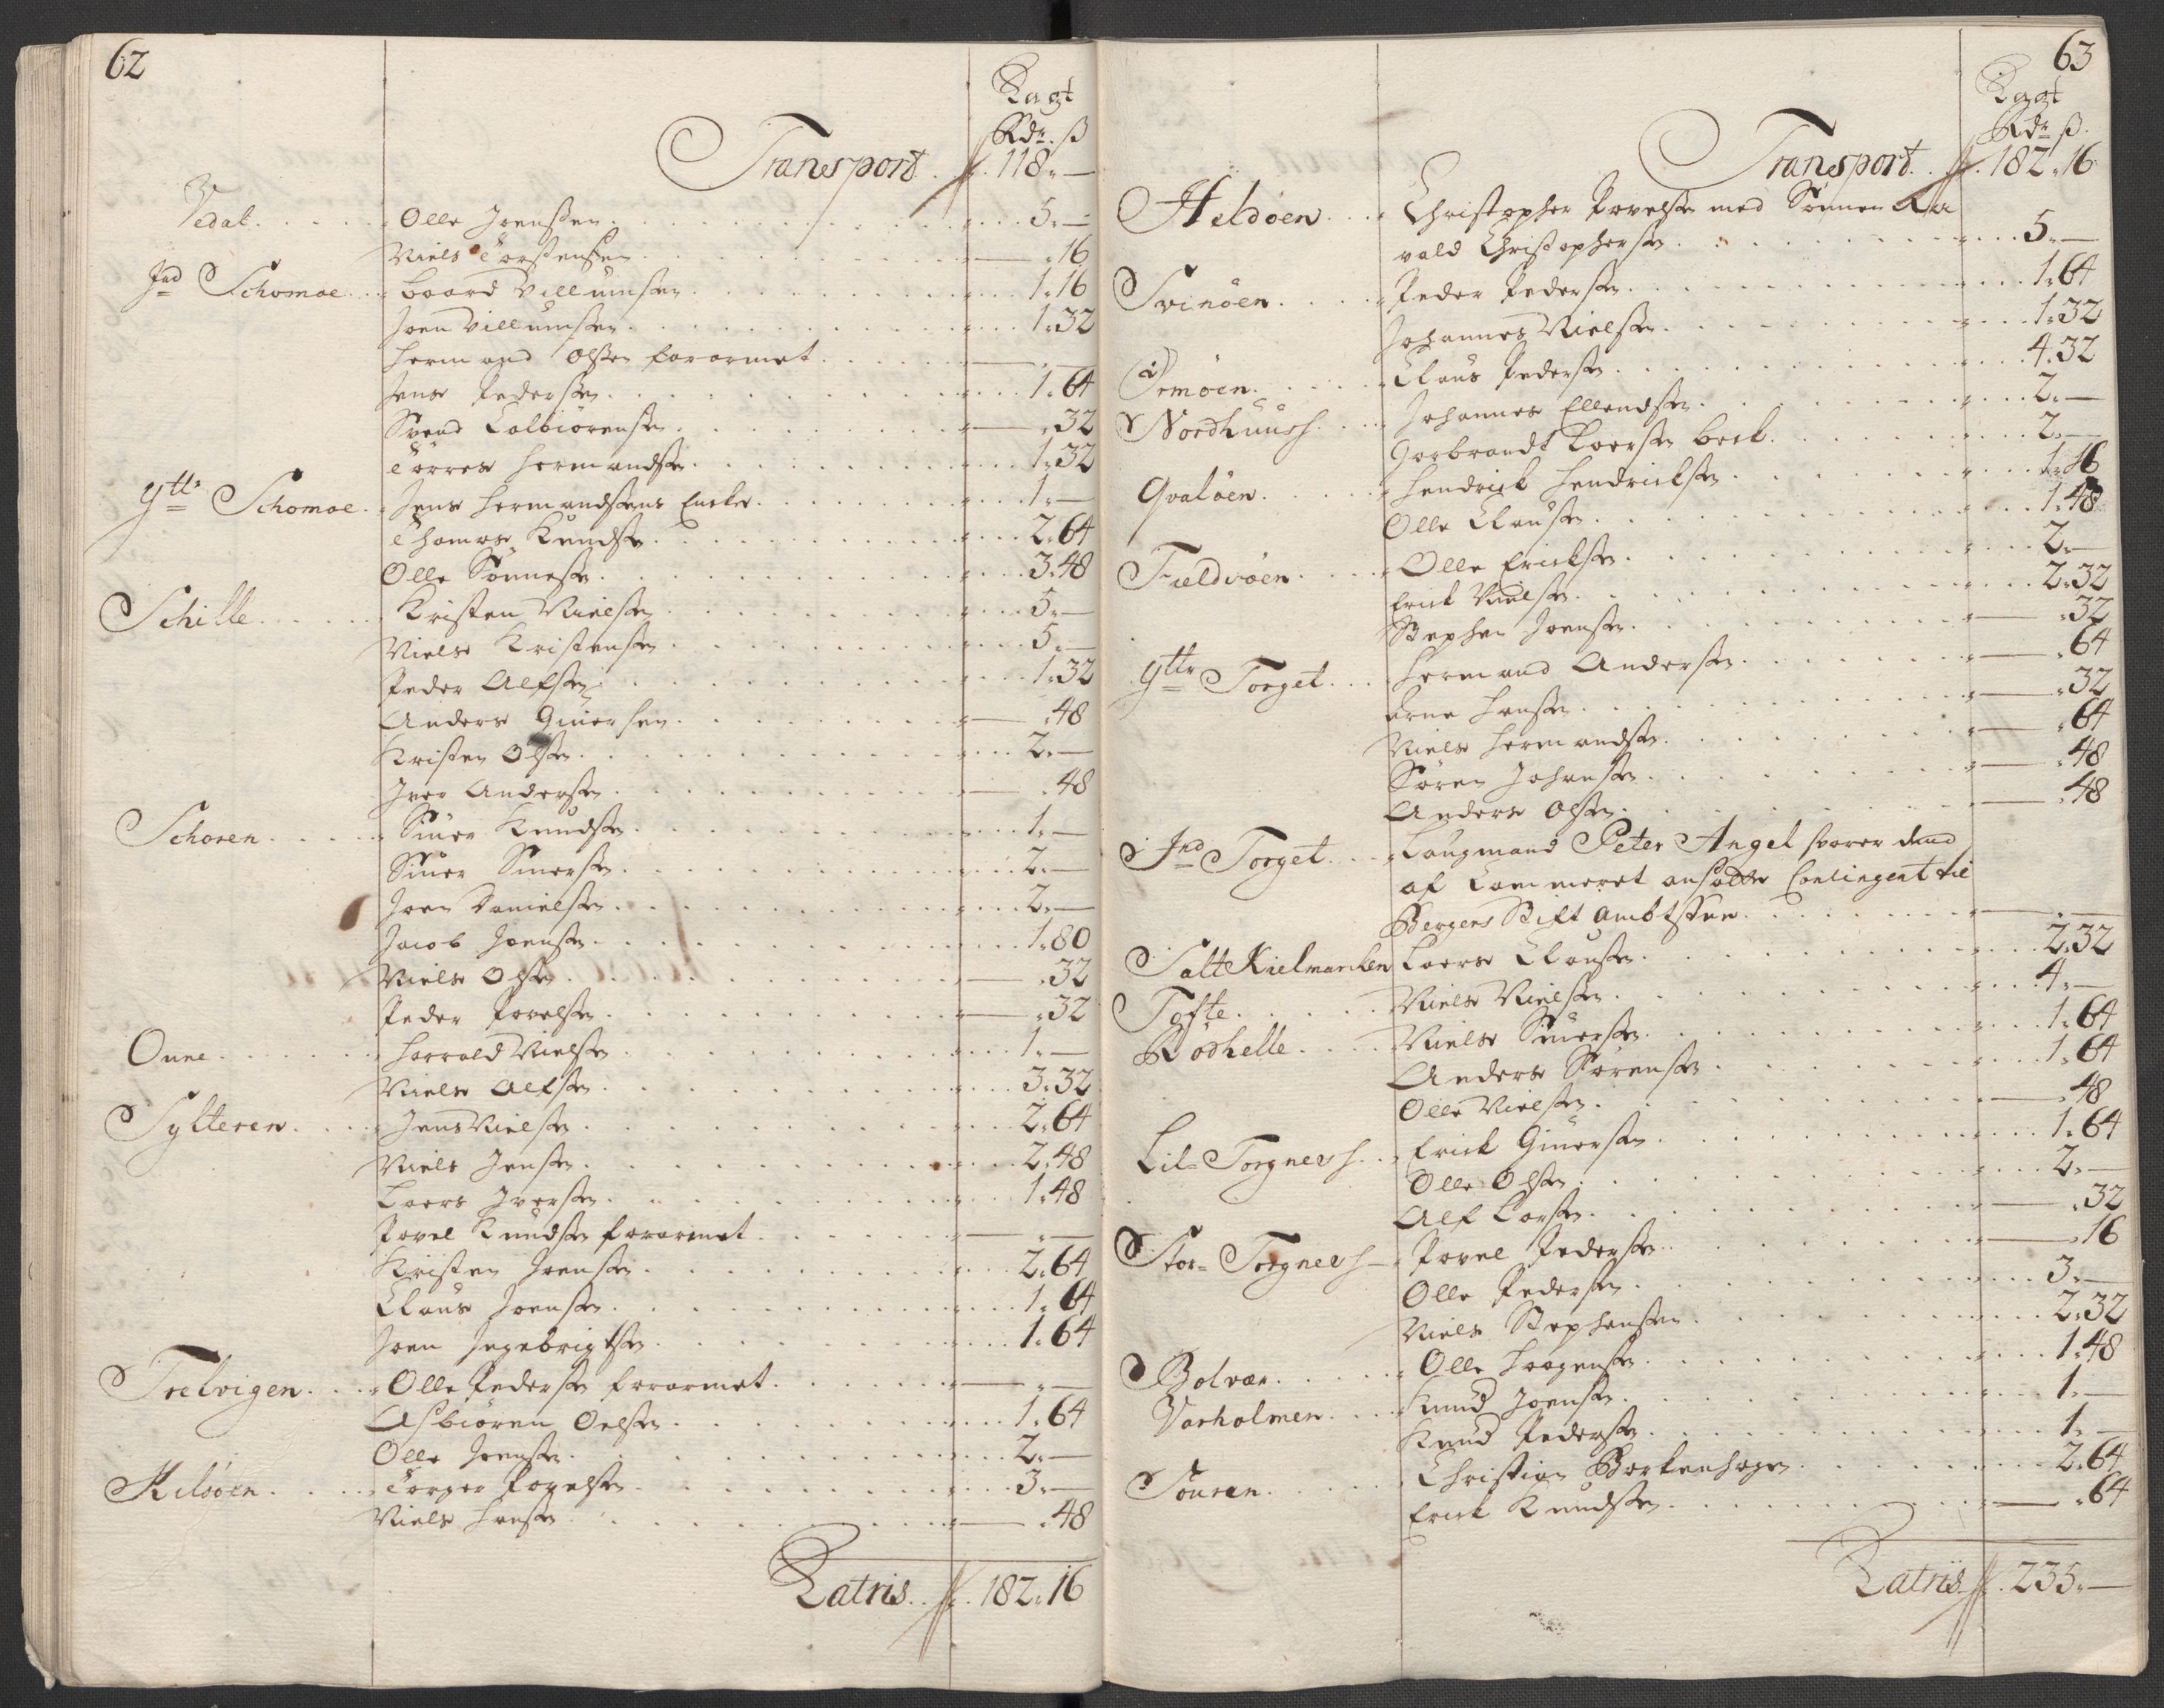 62
Lagt
Rdr. ß
Transport. 118 " —
Vedal. Olle Joensen. 5 " —
Niels Torstensen. " 16
Ind Schomoe. Baard Villumsen. 1 " 16
Joen Villumsen. 1 " 32
Hermand Olsen forarmet. — " —
Jens Pedersen. 1 " 64
Svend Colbiørensen. — " 32
Tørres Hermandsen. 1 " 32
Ytte Schomoe. Jens Hermandsens Encke. 1 " —
Thomas Knudsen. 2 " 64
Olle Sønnesen. 3 " 48
Schille. Kristen Nielsen. 5 " —
Niels Kristensen. 5 " —
Peder Alfsen. 1 " 32
Anders Giuersen. — " 48
Kristen Olsen. 2 " —
Iver Andersen. — " 48
Schoren. Siuer Knudsen. 1 " —
Siuer Siuersen. 2 " —
Joen Danielsen. 2 " —
Jacob Joensen. 1 " 80
Niels Olsen. — " 32
Peder Povelsen. — " 32
Onne. Harrald Nielsen. 1 " —
Niels Alfsen. 3 " 32
Sylteren. Jens Nielsen. 2 " 64
Niels Jensen. 2 " 48
Laers Iversen. 1 " 48
Povel Knudsen forarmet. — " —
Kristen Joensen. 2 " 64
Claus Joensen. 1 " 64
Joen Ingebrigtsen. 1 " 64
Trelvigen. Olle Pedersen forarmet. — " —
Asbiøren Oelsen. 1 " 64
Olle Joensen. 2 " —
Kiløøen. Torger Povelsen. 3 " —
Niels Hansen. — " 48
Latris. 182 " 16
63
Lagt
Rdr ß.
Transport. 182 " 16
Heldøen. Christopher Povelsen med Sønnen Aa
vald Christophersen. 5 " —
Svinøen. Peder Pedersen. 1 " 64
Johannes Nielsen. 1 " 32
Ormøen. Claus Pedersen. 4 " 32
Nordhuus. Johannes Ellendsen. 2 " —
Gorbrandt Laersen Beck. 2 " —
Qvaløen. Hendrick Hendricksen. 1 " 16
Olle Clausen. 1 " 48
Fieldvøen. Olle Ericksen. 2 " —
Erick Nielsen. 2 " 32
Stephen Joensen. — " 32
Ytte Torget. Hermand Andersen. — " 64
Arne Hansen. — " 32
Niels Hermandsen. — " 64
Søren Johansen. — " 48
Anders Olsen. — " 48
Ind Torget. Laugmand Peter Angel svarer dend
af Cammeret ansatte Contingent til
Bergens Stift Ambtstue. — " —
Salt Kielmarcken Laers Clausen. 2 " 32
Tofte. Niels Nielsen. 4 " —
Rødhelle. Niels Siuersen. 1 " 64
Anders Sørensen. 1 " 64
Olle Nielsen. — " 48
Lil= Torgness. Erick Giuersen. 1 " 64
Olle Olsen. 2 " —
Alf Larsen. — " 32
Stor= Torgness Povel Pedersen. — 16
Olle Pedersen. 3 " —
Niels Stephensen. 2 " 32
Bolvær. Olle Haagensen. 1 " 48
Varholmen. Knud Joensen. 1 " —
Knud Pedersen. 1 " —
Søuren. Christian Borkenhagen. 2 " 64
Erick Knudsen. — " 64
Latris. 235 " —